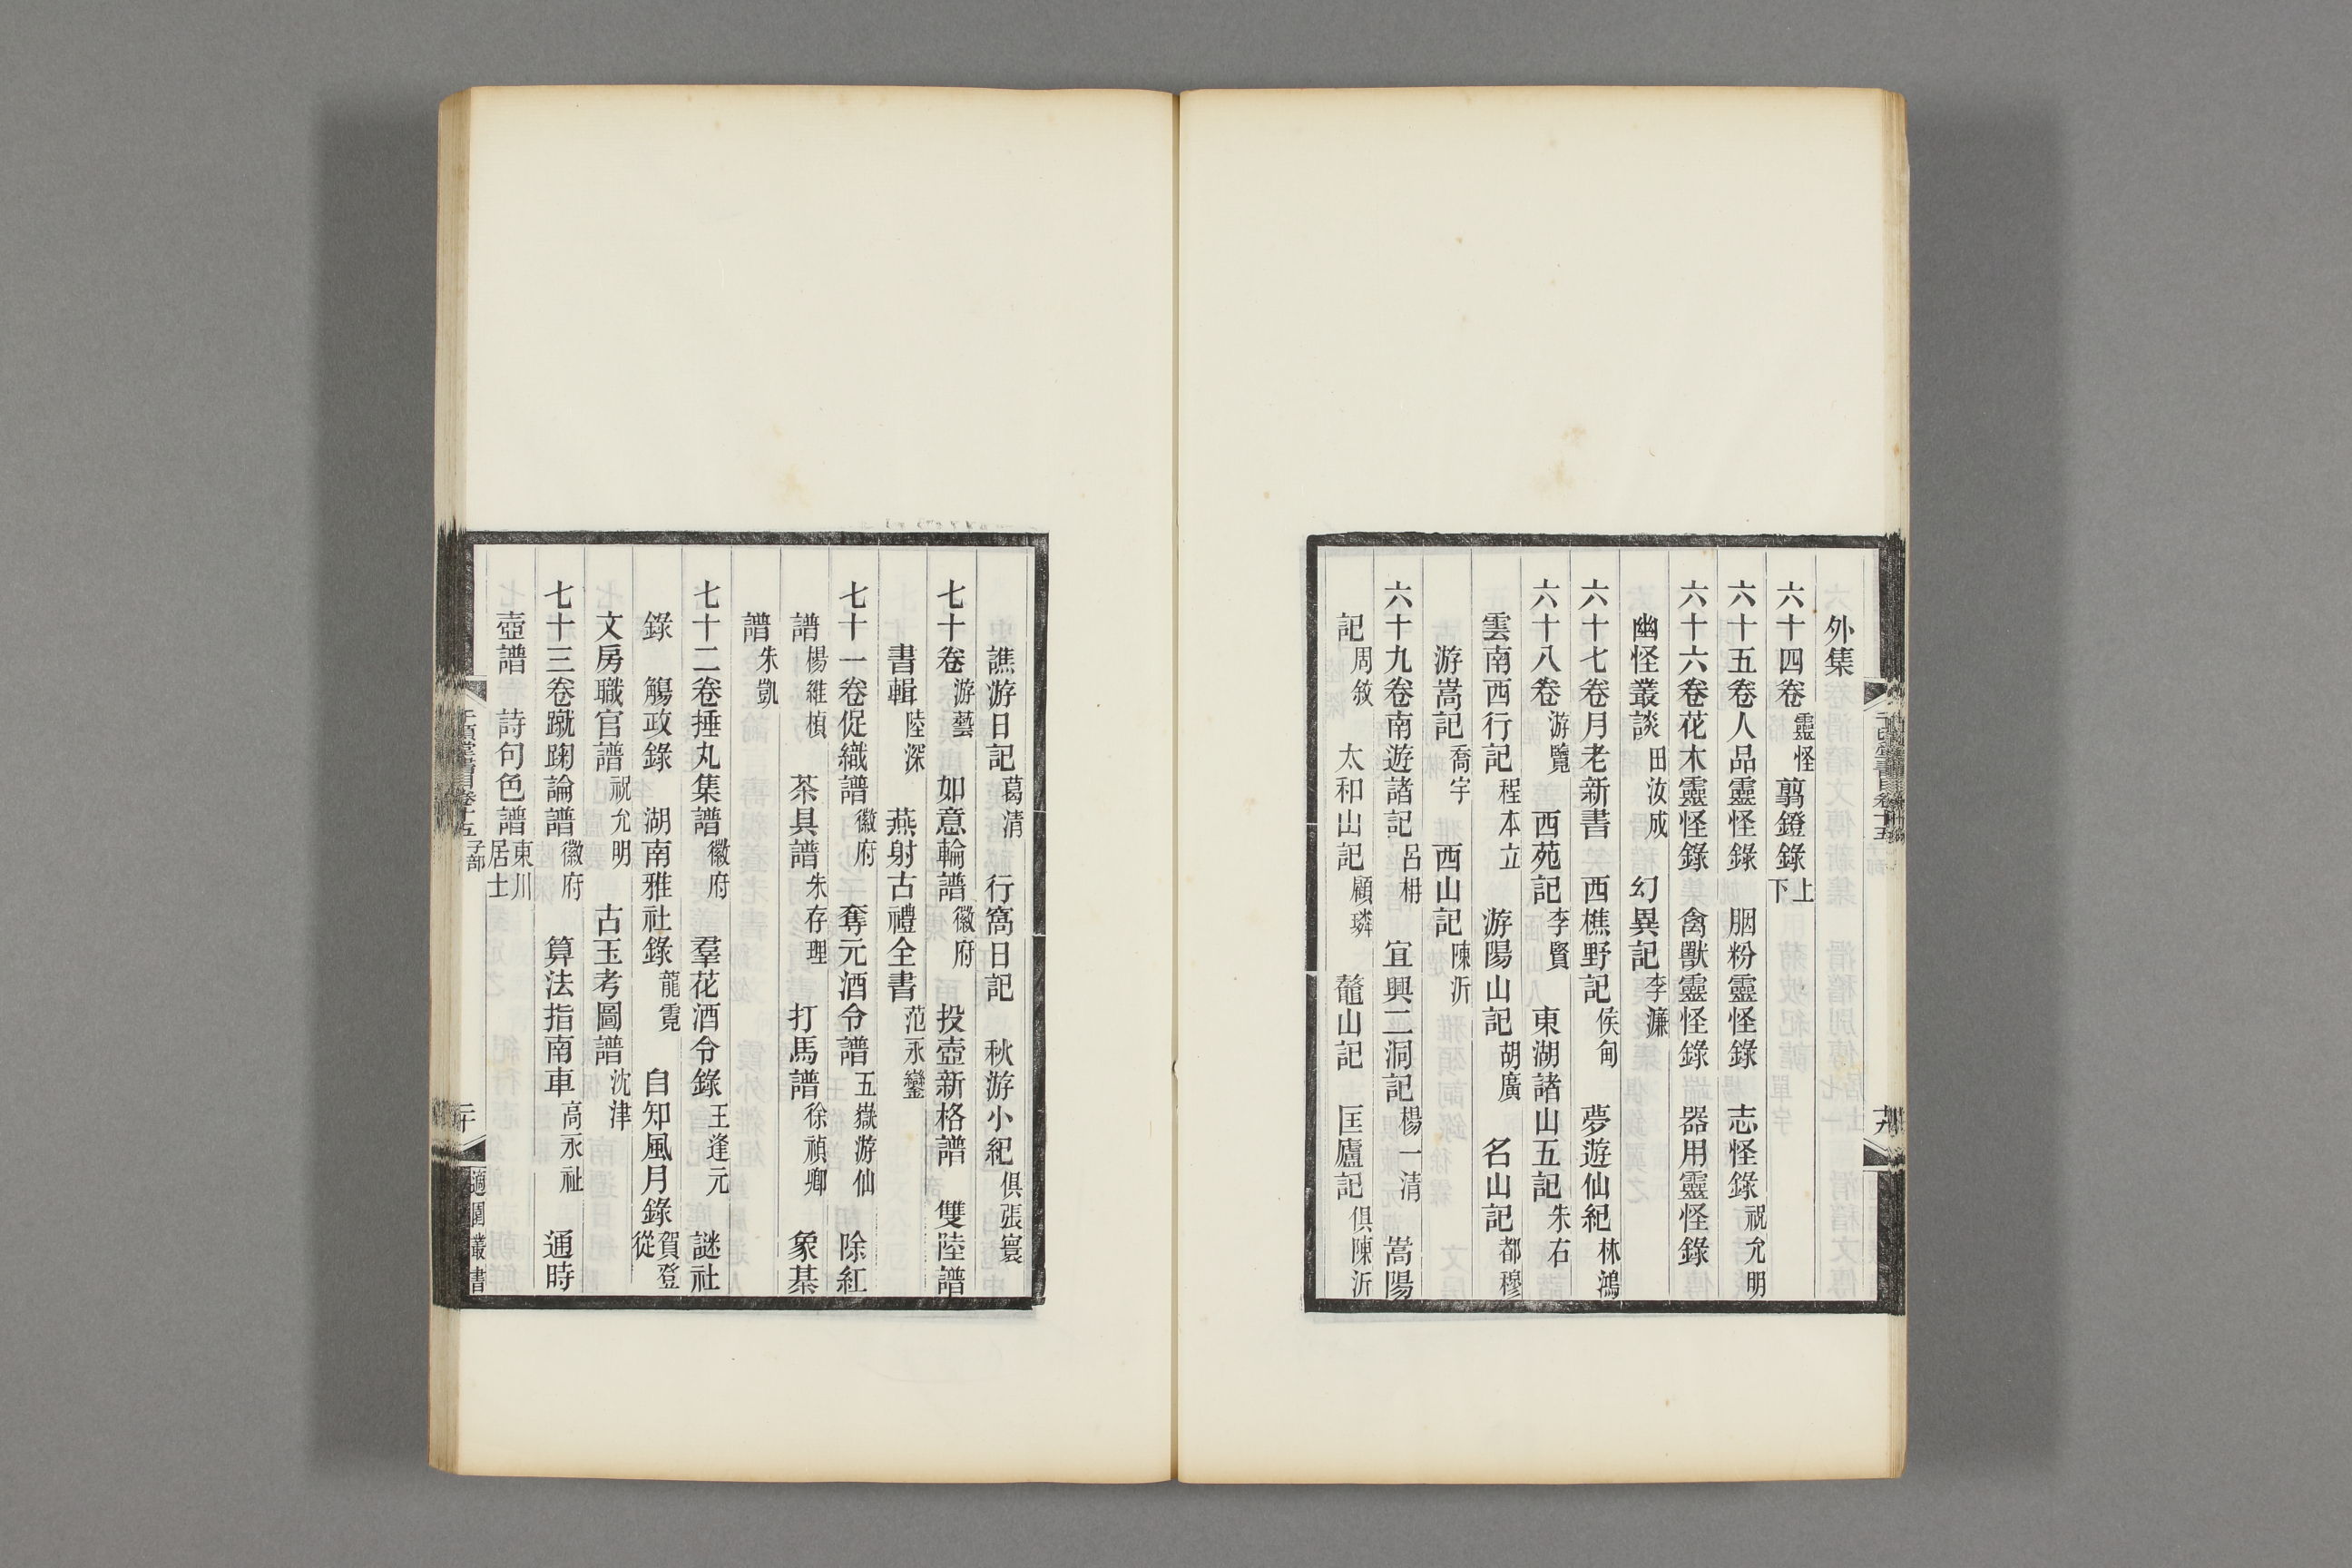 外集
六十四卷靈怪翦鐙錄上下
六十五卷人品靈怪錄　胭粉靈怪錄　志怪錄祝允明
六十六卷花木靈怪錄　禽獸靈怪錄　器用靈怪錄
幽怪叢談田汝成　幻異記李濂
六十七卷月老新書　西樵野記侯甸　夢遊仙紀林鴻
六十八卷游覽　西苑記李賢　東湖諸山五記朱右
雲南西行記程本立　游陽山記胡廣　名山記都穆
游嵩記喬宇　西山記陳沂
六十九卷南遊諸記呂枏　宜興二洞記楊一清　嵩陽
記周敘　太和山記顧璘　鼇山記　匡廬記俱陳沂
譙游日記葛清　行窩日記　秋游小紀俱張寰
七十卷游藝　如意輪譜徽府　投壺新格譜　雙陸譜
書輯陸深　燕射古禮全書范永鑾
七十一卷促織譜徽府　奪元酒令譜五嶽游仙　除紅
譜楊維楨　茶具譜朱存理　打馬譜徐禎卿　象棊
譜朱凱
七十二卷捶丸集譜徽府　羣花酒令錄王逢元　謎社
錄　觴政錄　湖南雅社錄龍霓　自知風月錄賀登從
文房職官譜祝允明　古玉考圖譜沈津
七十三卷蹴踘論譜徽府　算法指南車高永祉　通時
壺譜　詩句色譜東川居士
千頃堂書目卷十五　子部　二十　適園叢書